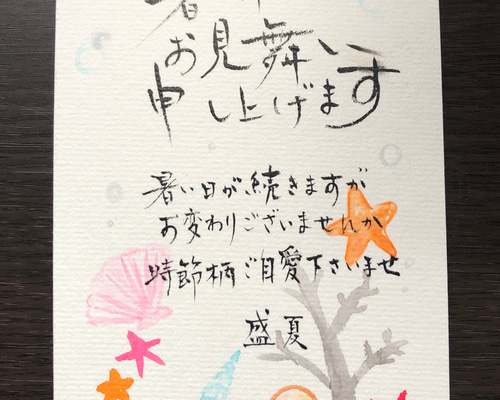 お見舞い
申し上げます
暑い日が続きますが
お変わりございませんか
時節柄ご自愛下さいませ
盛夏